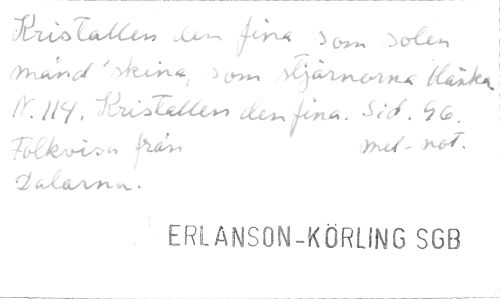 Kristallen den fina som solen
månd' skina, som stjärnorna blänka
N. 114. Kristallen den fina. Sid. 96.
Folkvisa från med not.
Dalarna.
ERLANSON-KÖRLING SGB